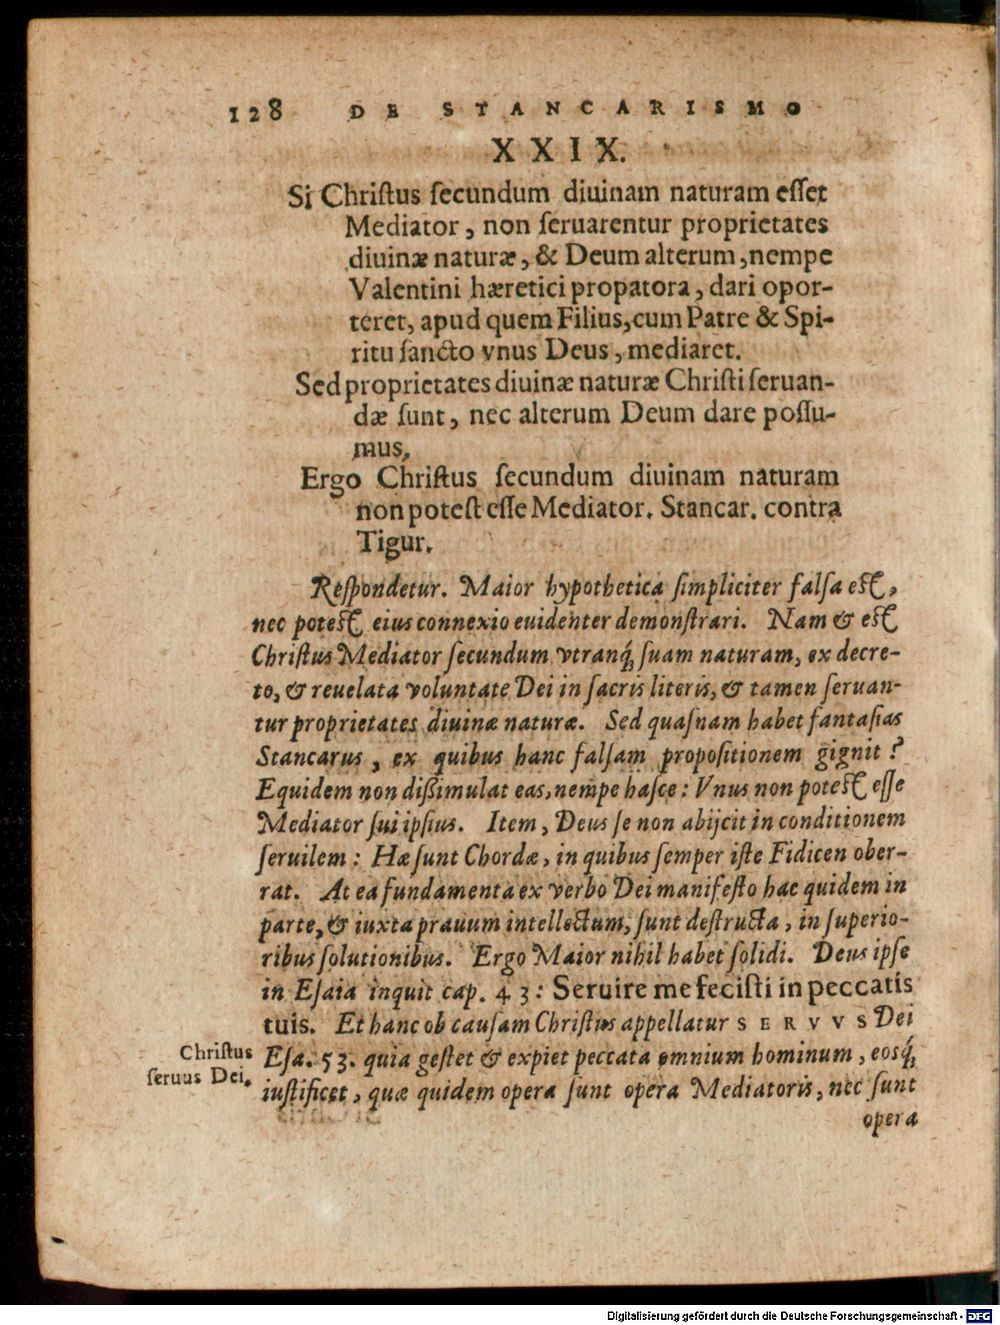 128 DE STANCARISMO
XXIX.
Si Christus secundum diuinam naturam esset
Mediator, non seruarentur proprietates
diuinæ naturæ, & Deum alterum, nempe
Valentini hæretici propatora, dari opor-
teret, apud quem Filius, cum Patre & Spi-
ritu sancto vnus Deus, mediaret.
Sed proprietates diuinæ naturæ Christi seruan-
dæ sunt, nec alterum Deum dare possu-
mus.
Ergo Christus secundum diuinam naturam
non potest esse Mediator. Stancar. contra
Tigur.
Respondetur. Maior hypothetica simpliciter falsa est,
nec potest eius connexio euidenter demonstrari. Nam & est
Christus Mediator secundum vtranq́; suam naturam, ex decre-
to, & reuelata voluntate Dei in sacris literis, & tamen seruan-
tur proprietates diuinæ naturæ. Sed quasnam habet fantasias
Stancarus, ex quibus hanc falsam propositionem gignit?
Equidem non dißimulat eas, nempe hasce: Vnus non potest esse
Mediator sui ipsius. Item, Deus se non abijcit in conditionem
seruilem: Hæ sunt Chordæ, in quibus semper iste Fidicen ober-
rat. At ea fundamenta ex verbo Dei manifesto hac quidem in
parte, & iuxta prauum intellectum, sunt destructa, in superio-
ribus solutionibus. Ergo Maior nihil habet solidi. Deus ipse
in Esaia inquit cap. 43: Seruire me fecisti in peccatis
tuis. Et hanc ob causam Christus appellatur SERVVS Dei
Esa. 53. quia gestet & expiet peccata omnium hominum, eosq́;
iustificet, quæ quidem opera sunt opera Mediatoris, nec sunt
opera
Christus
seruus Dei.
Digitalisierung gefördert durch die Deutsche Forschungsgemeinschaft - DFG